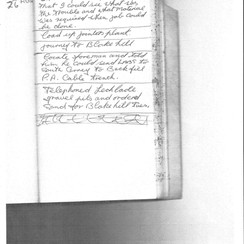 that I could see what
the trouble and what material
was required when job could
be done.
Load up jointers plant
journey to Blakehill
Locate foreman and told
him he could send lorry to
South Cerney to Backfill
P.A. Cable trench.
Telephoned Lechlade
gravel pits and ordered
Sand for Blakehill